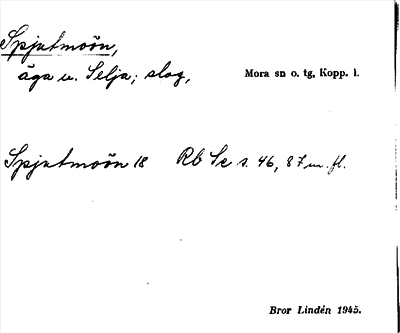 Spjutmoön,
äga u. Selja; slog, Mora sn o. tg, Kopp. l.
Spjutmoön 18 Rb Se s. 46, 87 m. fl.
Bror Lindén 1945.